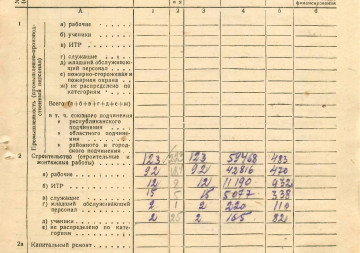 финансирования
А 1 2 3 4 5 6
1 Промышленность (промышленно-производственный персонал)
а) рабочие
б) ученики
в) ИТР
г) служащие
д) младший обслуживающий персонал
е) пожарно-сторожевая и пожарная охрана
ж) не распределено по категориям
Всего
в т. ч. союзного подчинения
республиканского подчинения
областного подчинения
районного и городского подчинения
2 Строительство (строительные и монтажные работы) 123 123 59468 483
а) рабочие 92 92 42816 470
б) ИТР 12 12 11190 932
в) служащие 15 15 5077 338
г) младший обслуживающий персонал 2 2 220 110
д) ученики 2 2 165 82
е) не распределено по категориям
2а Капитальный ремонт